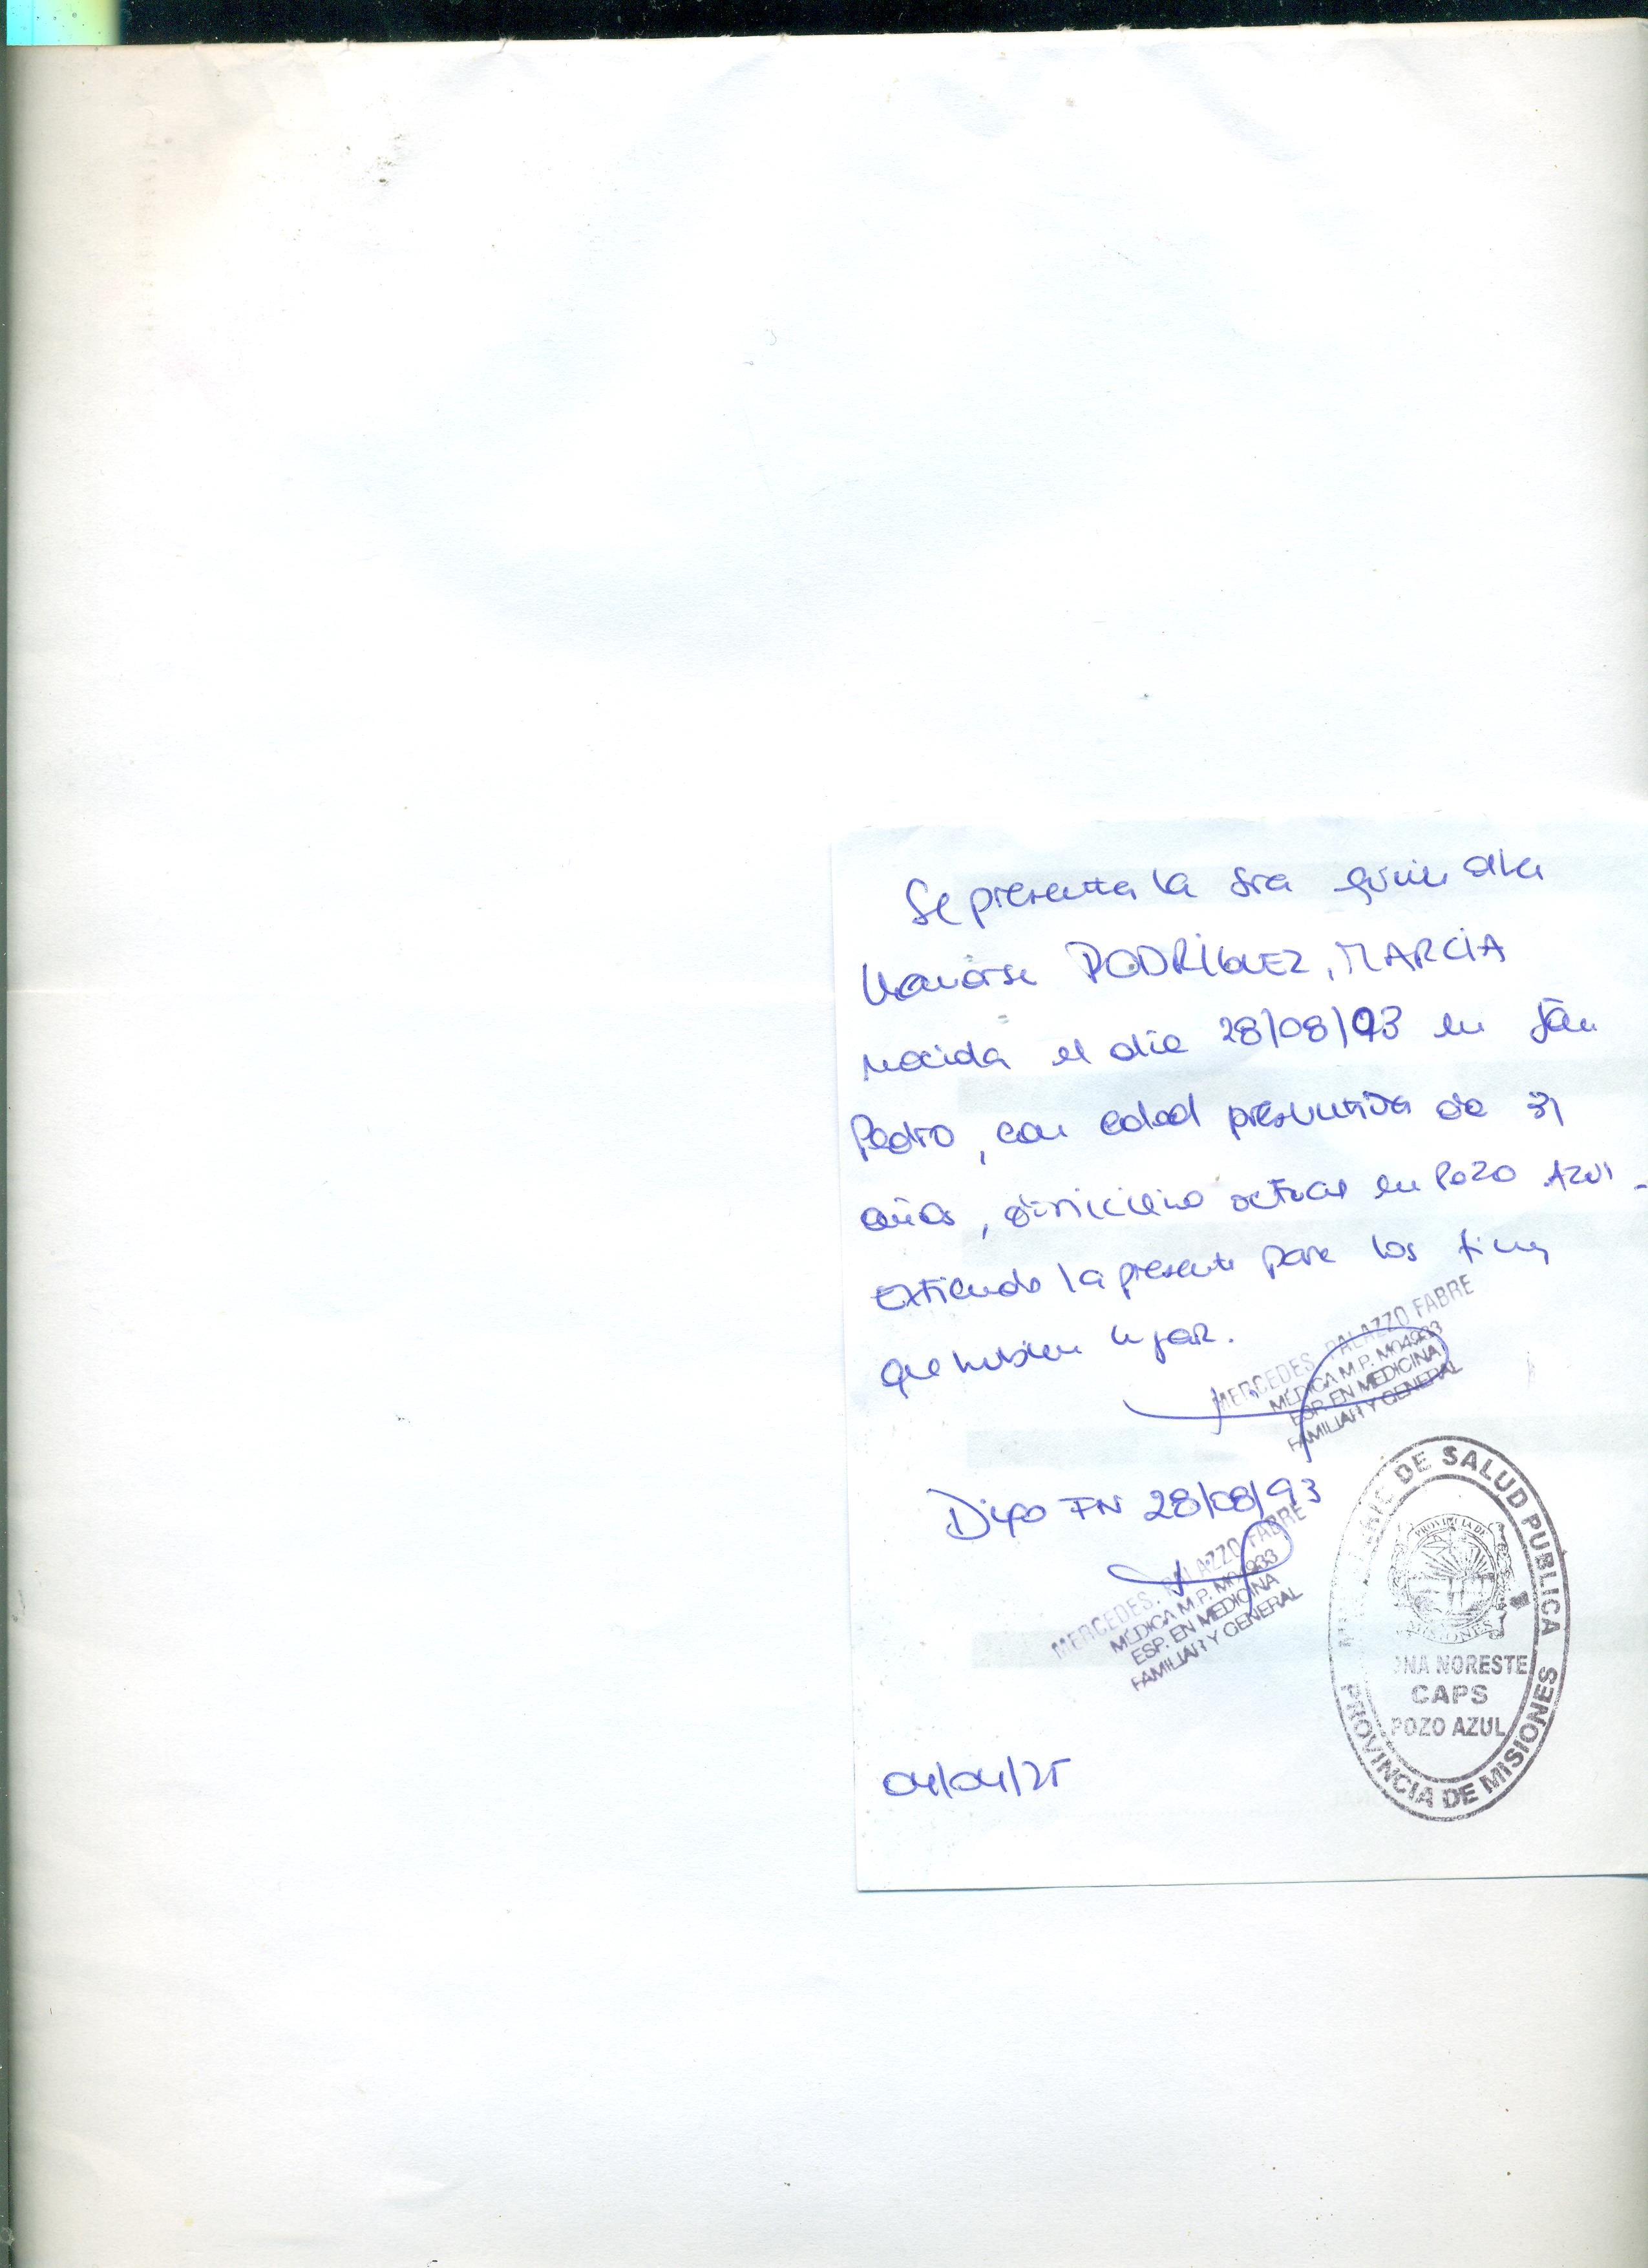 Se presenta la Sra quien dice
llamarse RODRÍGUEZ, MARCIA
nacida el día 28/08/93 en San
Pedro, con edad presuntiva de 31
años, domicilio actual en Pozo Azul -
Extiendo la presente para los fines
que hubiere lugar.
MERCEDES. PALAZZO FABRE
MÉDICA M.P. M04933
ESP. EN MEDICINA
FAMILIAR Y GENERAL
Digo FN 28/08/93
MERCEDES. PALAZZO FABRE
MÉDICA M.P. M04933
ESP. EN MEDICINA
FAMILIAR Y GENERAL
DE SALUD PUBLICA
PROVINCIA DE
MISIONES
ONA NORESTE
CAPS
POZO AZUL
PROVINCIA DE MISIONES
04/04/25